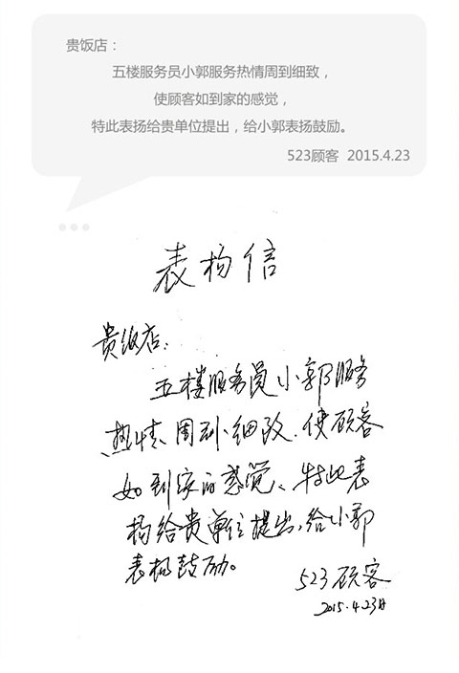 贵饭店：
五楼服务员小郭服务热情周到细致，
使顾客如到家的感觉，
特此表扬给贵单位提出，给小郭表扬鼓励。
523顾客 2015.4.23
表杨信
贵饭店：
五楼服务员小郭服务
热情、周到细致、使顾客
如到家的感觉、特此表
杨给贵单位提出，给小郭
表杨鼓励。
523顾客
2015.4.23日